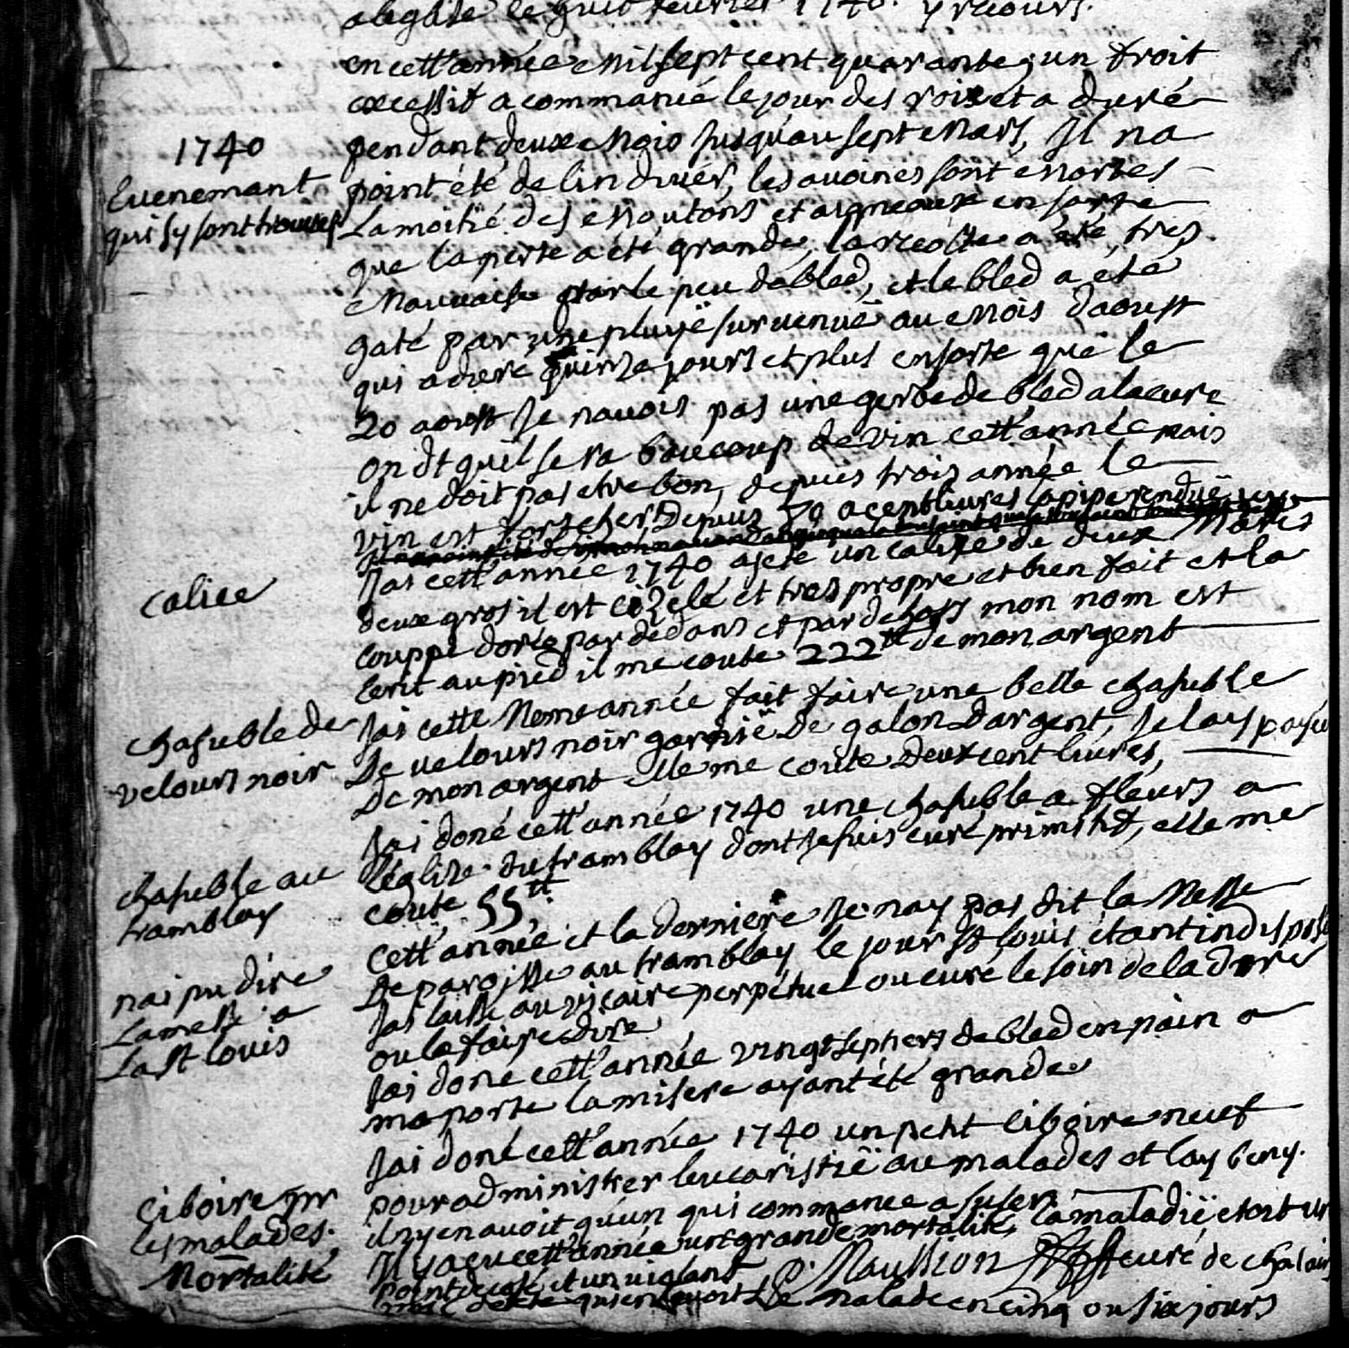 en cett'année mil sept cent quarante, un froit
excessif a commancé le jour des rois et a duré
1740
pendant deux mois jusqu'au sept mars, Il na
Evenemant
point été de lin dhivér, les avoines sont mortes
qui sy sont trouvés
La moitié des moutons et aigneaux en sorte
que la perte a été grande, la recolte a été tres
mauvaise par le peu de bled, et le bled a été
gaté par une pluyë survenuë au mois daoust
qui a duré quinze jours et plus en sorte que le
20 aoust Je navois pas une gerbe de bled a la cure
on dt quil se ra baucoup de vin cett'année mais
il ne doit pas etre bon, depuis trois année le
vin est fort cher Depuis 70 a cent livres la pipe renduë
Calice
Jai cett'année 1740 ajeté un calixe de deux Marcs
deux gros il est cizelé et tres propre et bien fait et la
couppe dorée par dedans et par dehors mon nom est
Ecrit au pied il me coute 222tt de mon argent
chasuble de
velours noir
Jai cette Meme année fait faire une belle chasuble
De velours noir garnië De galon Dargent, Je lay payé
De mon argent elle me coute Deux cent livres,
chasuble au
tramblay
Jai doné cett'année 1740 une chasuble a fleurs a
léglize du tramblay dont Je suis curé primitif, elle me
coute 55tt
nai pu dire
La messe a
La st louis
Cett'année et la derniere Je nay pas dit la Messe
De paroisse au tramblay le jour st Louis étant indisposé
Jai laissé au vicaire perpétuel ou curé le soin de la dire
ou la faire dire
Jai doné cett'année vingt septiers de bled en pain a
ma porte la misere ayant été grande
Ciboire pr
les malades.
Jai doné cett'année 1740 un petit ciboire neuf
pour administrer leucaristië au malades et lay beny.
il ny en avoit qu'un qui commance a suser
Mortalité
Il y a eu cett'année une grande mortalité, la maladië etoit un
point de coté et un
P. Maussion curé de chalain
malade en cinq ou six jours